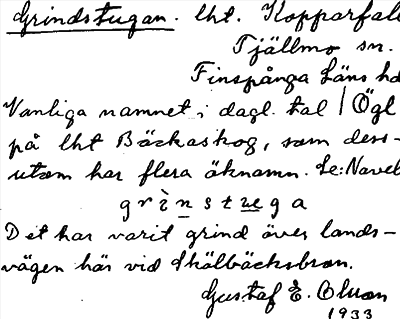 Grindstugan. lht. Kopparfall
Tjällmo sn.
Finspånga Läns hd
Vanliga namnet i dagl. tal / Ögl
på lht Bäckaskog, som dess-
utom har flera öknamn. Se: Navel
grìnstega
Det har varit grind över lands-
vägen här vid Skälbäcksbron.
Gustaf E. Olsson
1933